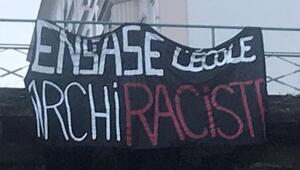 ENSASE L'ÉCOLE
ARCHIRACISTE